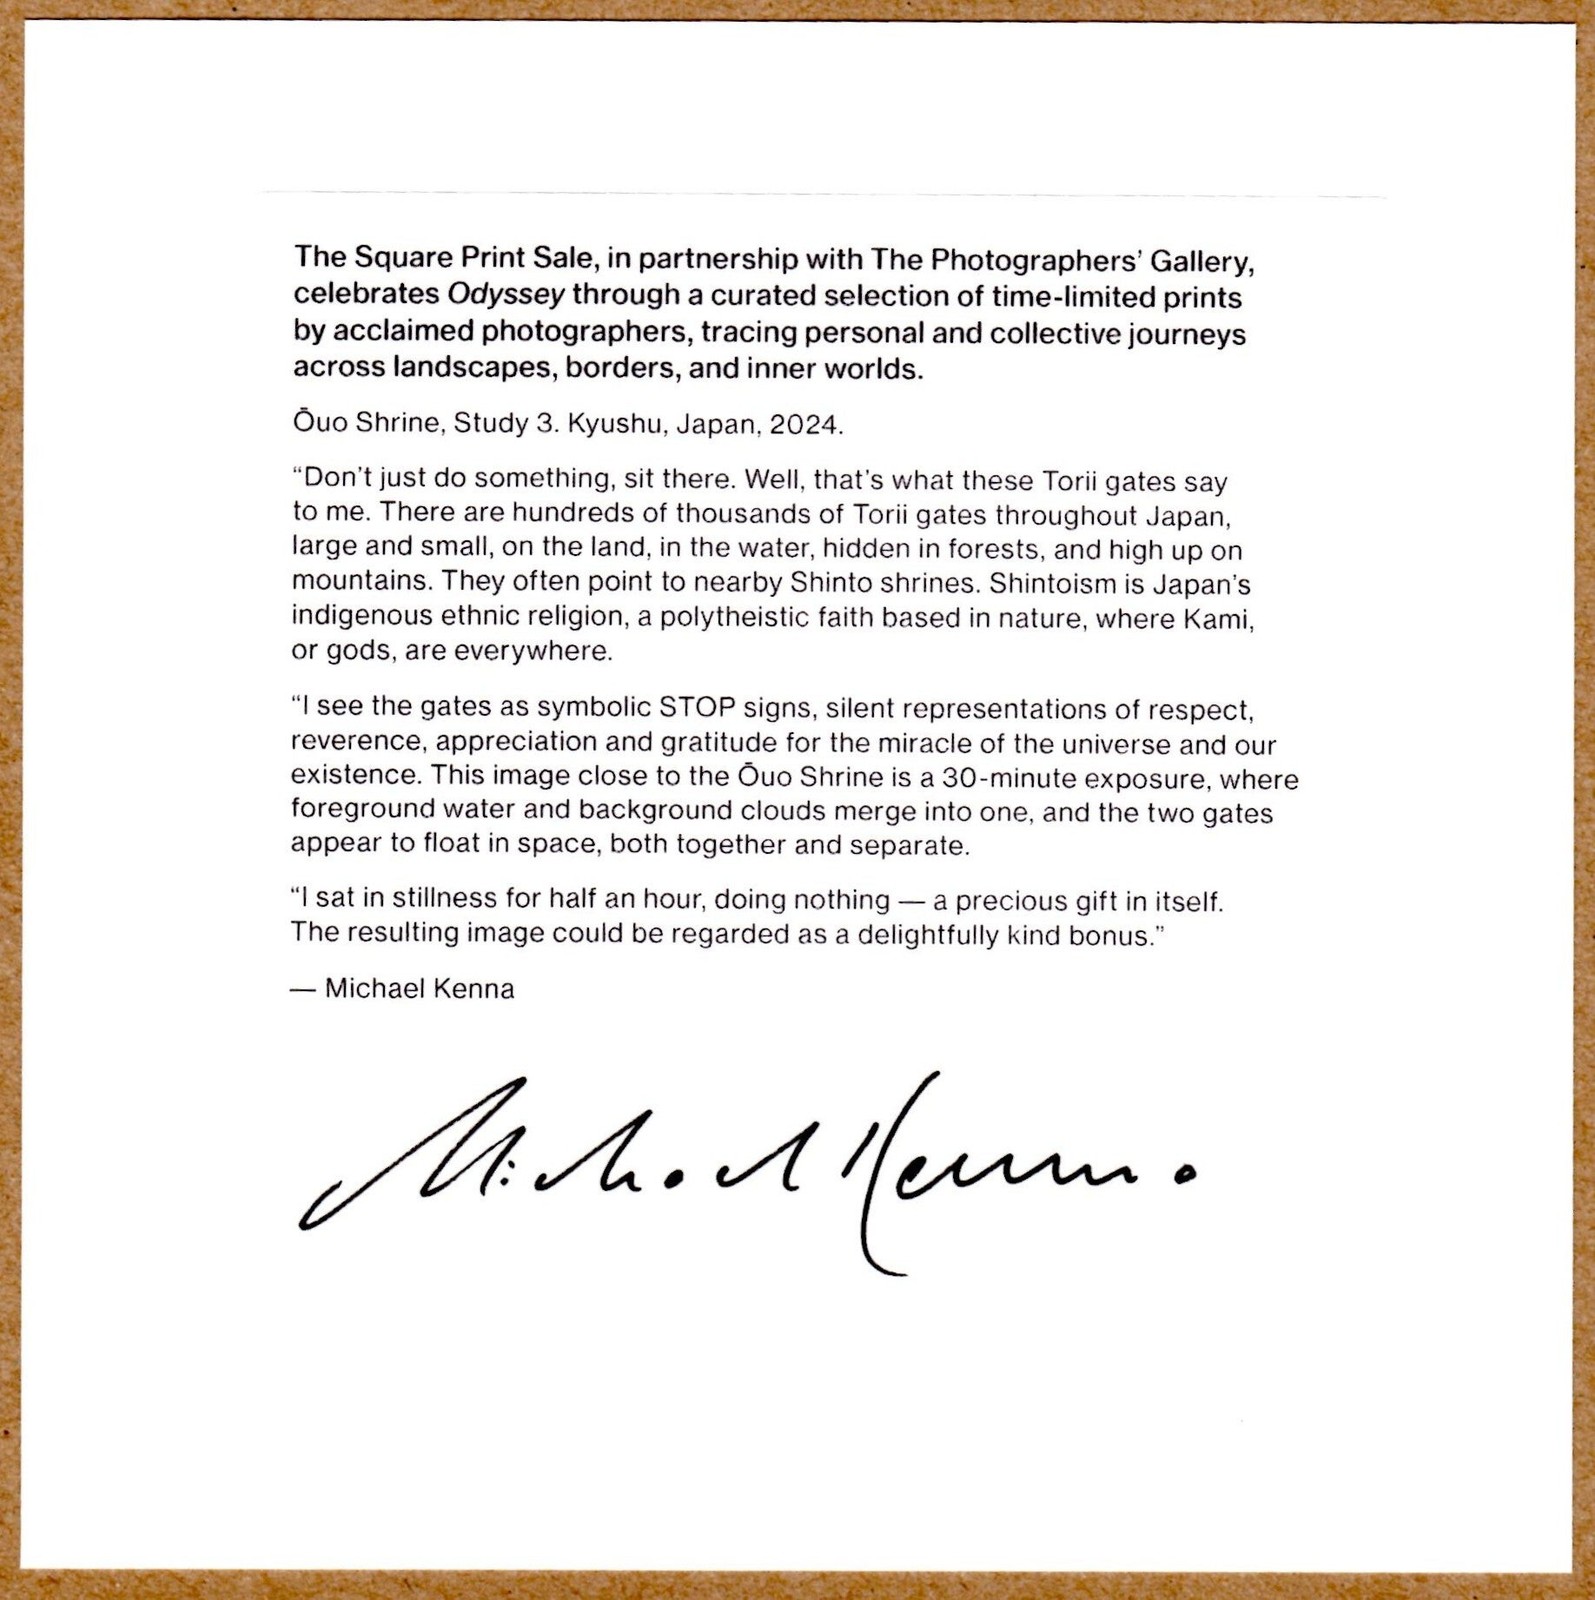 The Square Print Sale, in partnership with The Photographers’ Gallery,
celebrates Odyssey through a curated selection of time-limited prints
by acclaimed photographers, tracing personal and collective journeys
across landscapes, borders, and inner worlds.
Ōuo Shrine, Study 3. Kyushu, Japan, 2024.
“Don’t just do something, sit there. Well, that’s what these Torii gates say
to me. There are hundreds of thousands of Torii gates throughout Japan,
large and small, on the land, in the water, hidden in forests, and high up on
mountains. They often point to nearby Shinto shrines. Shintoism is Japan’s
indigenous ethnic religion, a polytheistic faith based in nature, where Kami,
or gods, are everywhere.
“I see the gates as symbolic STOP signs, silent representations of respect,
reverence, appreciation and gratitude for the miracle of the universe and our
existence. This image close to the Ōuo Shrine is a 30-minute exposure, where
foreground water and background clouds merge into one, and the two gates
appear to float in space, both together and separate.
“I sat in stillness for half an hour, doing nothing — a precious gift in itself.
The resulting image could be regarded as a delightfully kind bonus.”
— Michael Kenna
Michael Kenna